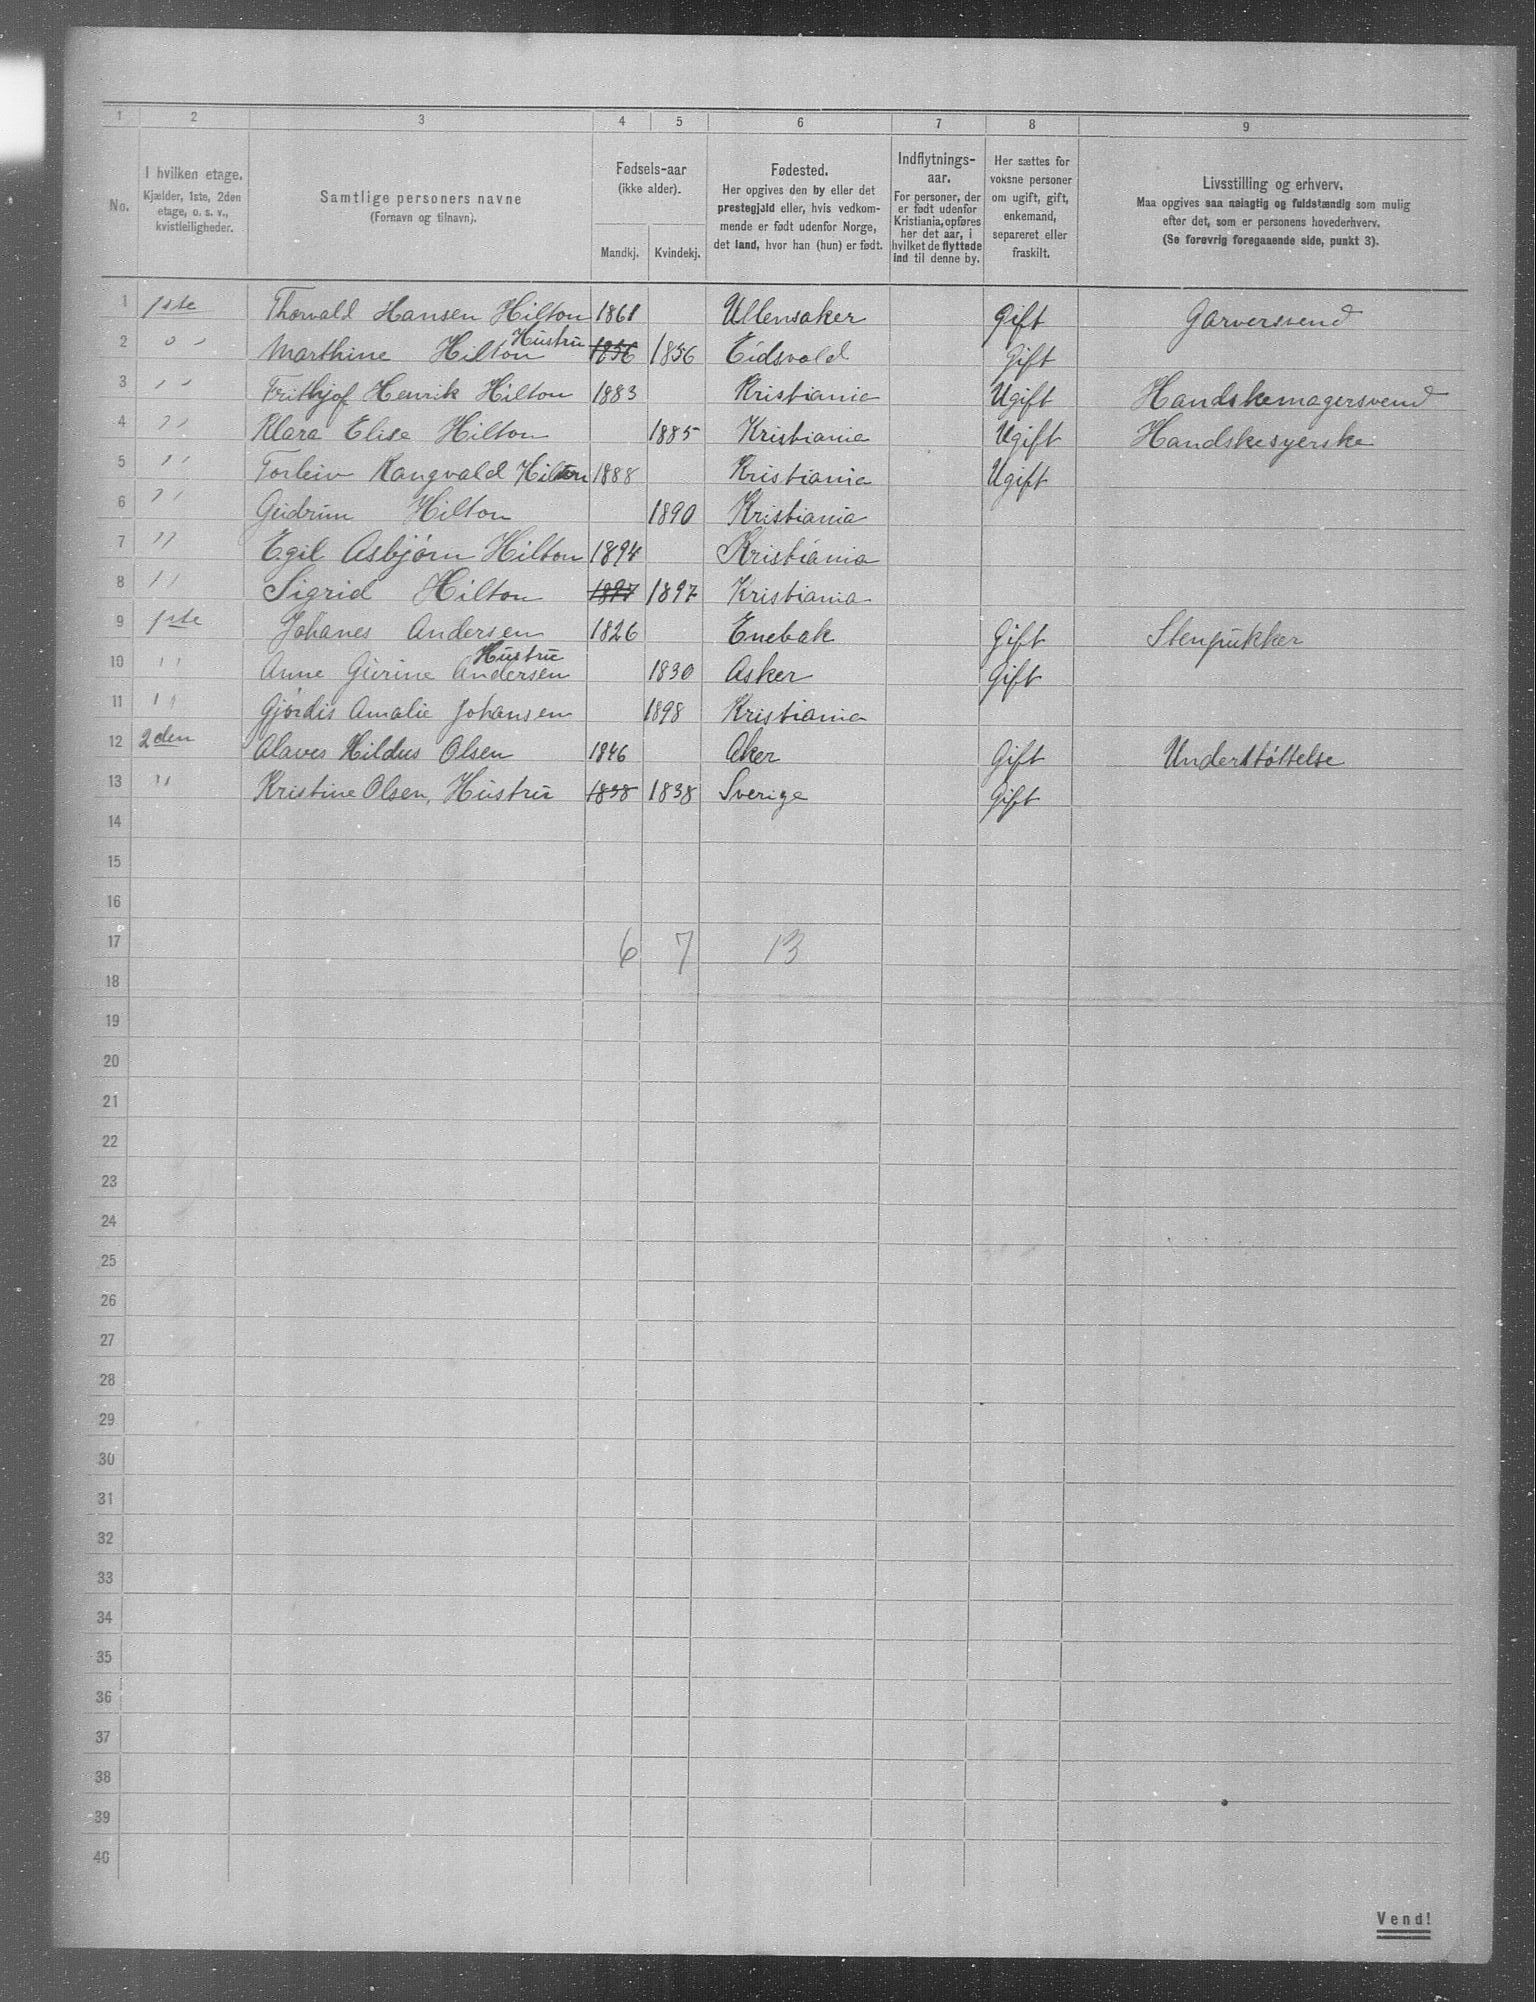 1 2 3 4 5 6 7 8 9
No.
I hvilken etage.
Kjælder, 1ste, 2den
etage, o. s. v.,
kvistleiligheder.
Samtlige personers navne
(Fornavn og tilnavn).
Fødsels-aar
(ikke alder).
Mandkj. Kvindekj.
Fødested.
Her opgives den by eller det
prestegjald eller, hvis vedkom-
mende er født udenfor Norge,
det land, hvor han (hun) er født.
Indflytnings-
aar.
For personer, der
er født udenfor
Kristiania, opføres
her det aar, i
hvilket de flyttede
ind til denne by.
Her sættes for
voksne personer
om ugift, gift,
enkemand,
separeret eller
fraskilt.
Livsstilling og erhverv.
Maa opgives saa nøiagtig og fuldstændig som mulig
efter det, som er personens hovederhverv.
(Se forøvrig foregaaende side, punkt 3).
1 1ste Thorvald Hansen Hilton 1861 Ullensaker Gift Garversvend
2 " Marthine Hilton Hustru 1856 1856 Eidsvold Gift
3 " Frithjof Henrik Hilton 1883 Kristiania Ugift Handskemagersvend
4 " Klara Elise Hilton 1885 Kristiania Ugift Handskesyerske
5 " Torleiv Rangvald Hilton 1888 Kristiania Ugift
6 " Gudrun Hilton 1890 Kristiania
7 " Egil Asbjørn Hilton 1894 Kristiania
8 " Sigrid Hilton 1897 1897 Kristiania
9 1ste Johanes Andersen 1826 Enebak Gift Stenpukker
10 " Anne Gurine Andersen Hustru 1830 Asker Gift
11 " Gjørdis Amalie Johansen 1898 Kristiania
12 2den Olaves Hildus Olsen 1846 Aker Gift Understøttelse
13 " Kristine Olsen, Hustru 1838 1838 Sverige Gift
14
15
16
17 6 7 13
18
19
20
21
22
23
24
25
26
27
28
29
30
31
32
33
34
35
36
37
38
39
40
Vend!